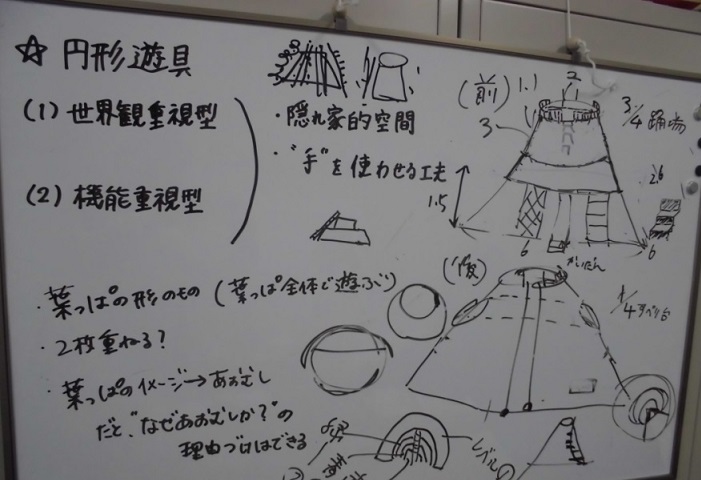 ☆ 円形遊具
(1) 世界観重視型
(2) 機能重視型
・隠れ家的空間
・"手"を使わせる工夫
・葉っぱの形のもの (葉っぱ全体で遊ぶ)
・2枚重ねる?
・葉っぱのイメージ→あおむし
だと、"なぜあおむしか?"の
理由づけはできる
(前)
1.1
2
3
3/4 踊場
1.5
2.6
6
かいだん
6
(後)
1/4 すべり台
レベル①